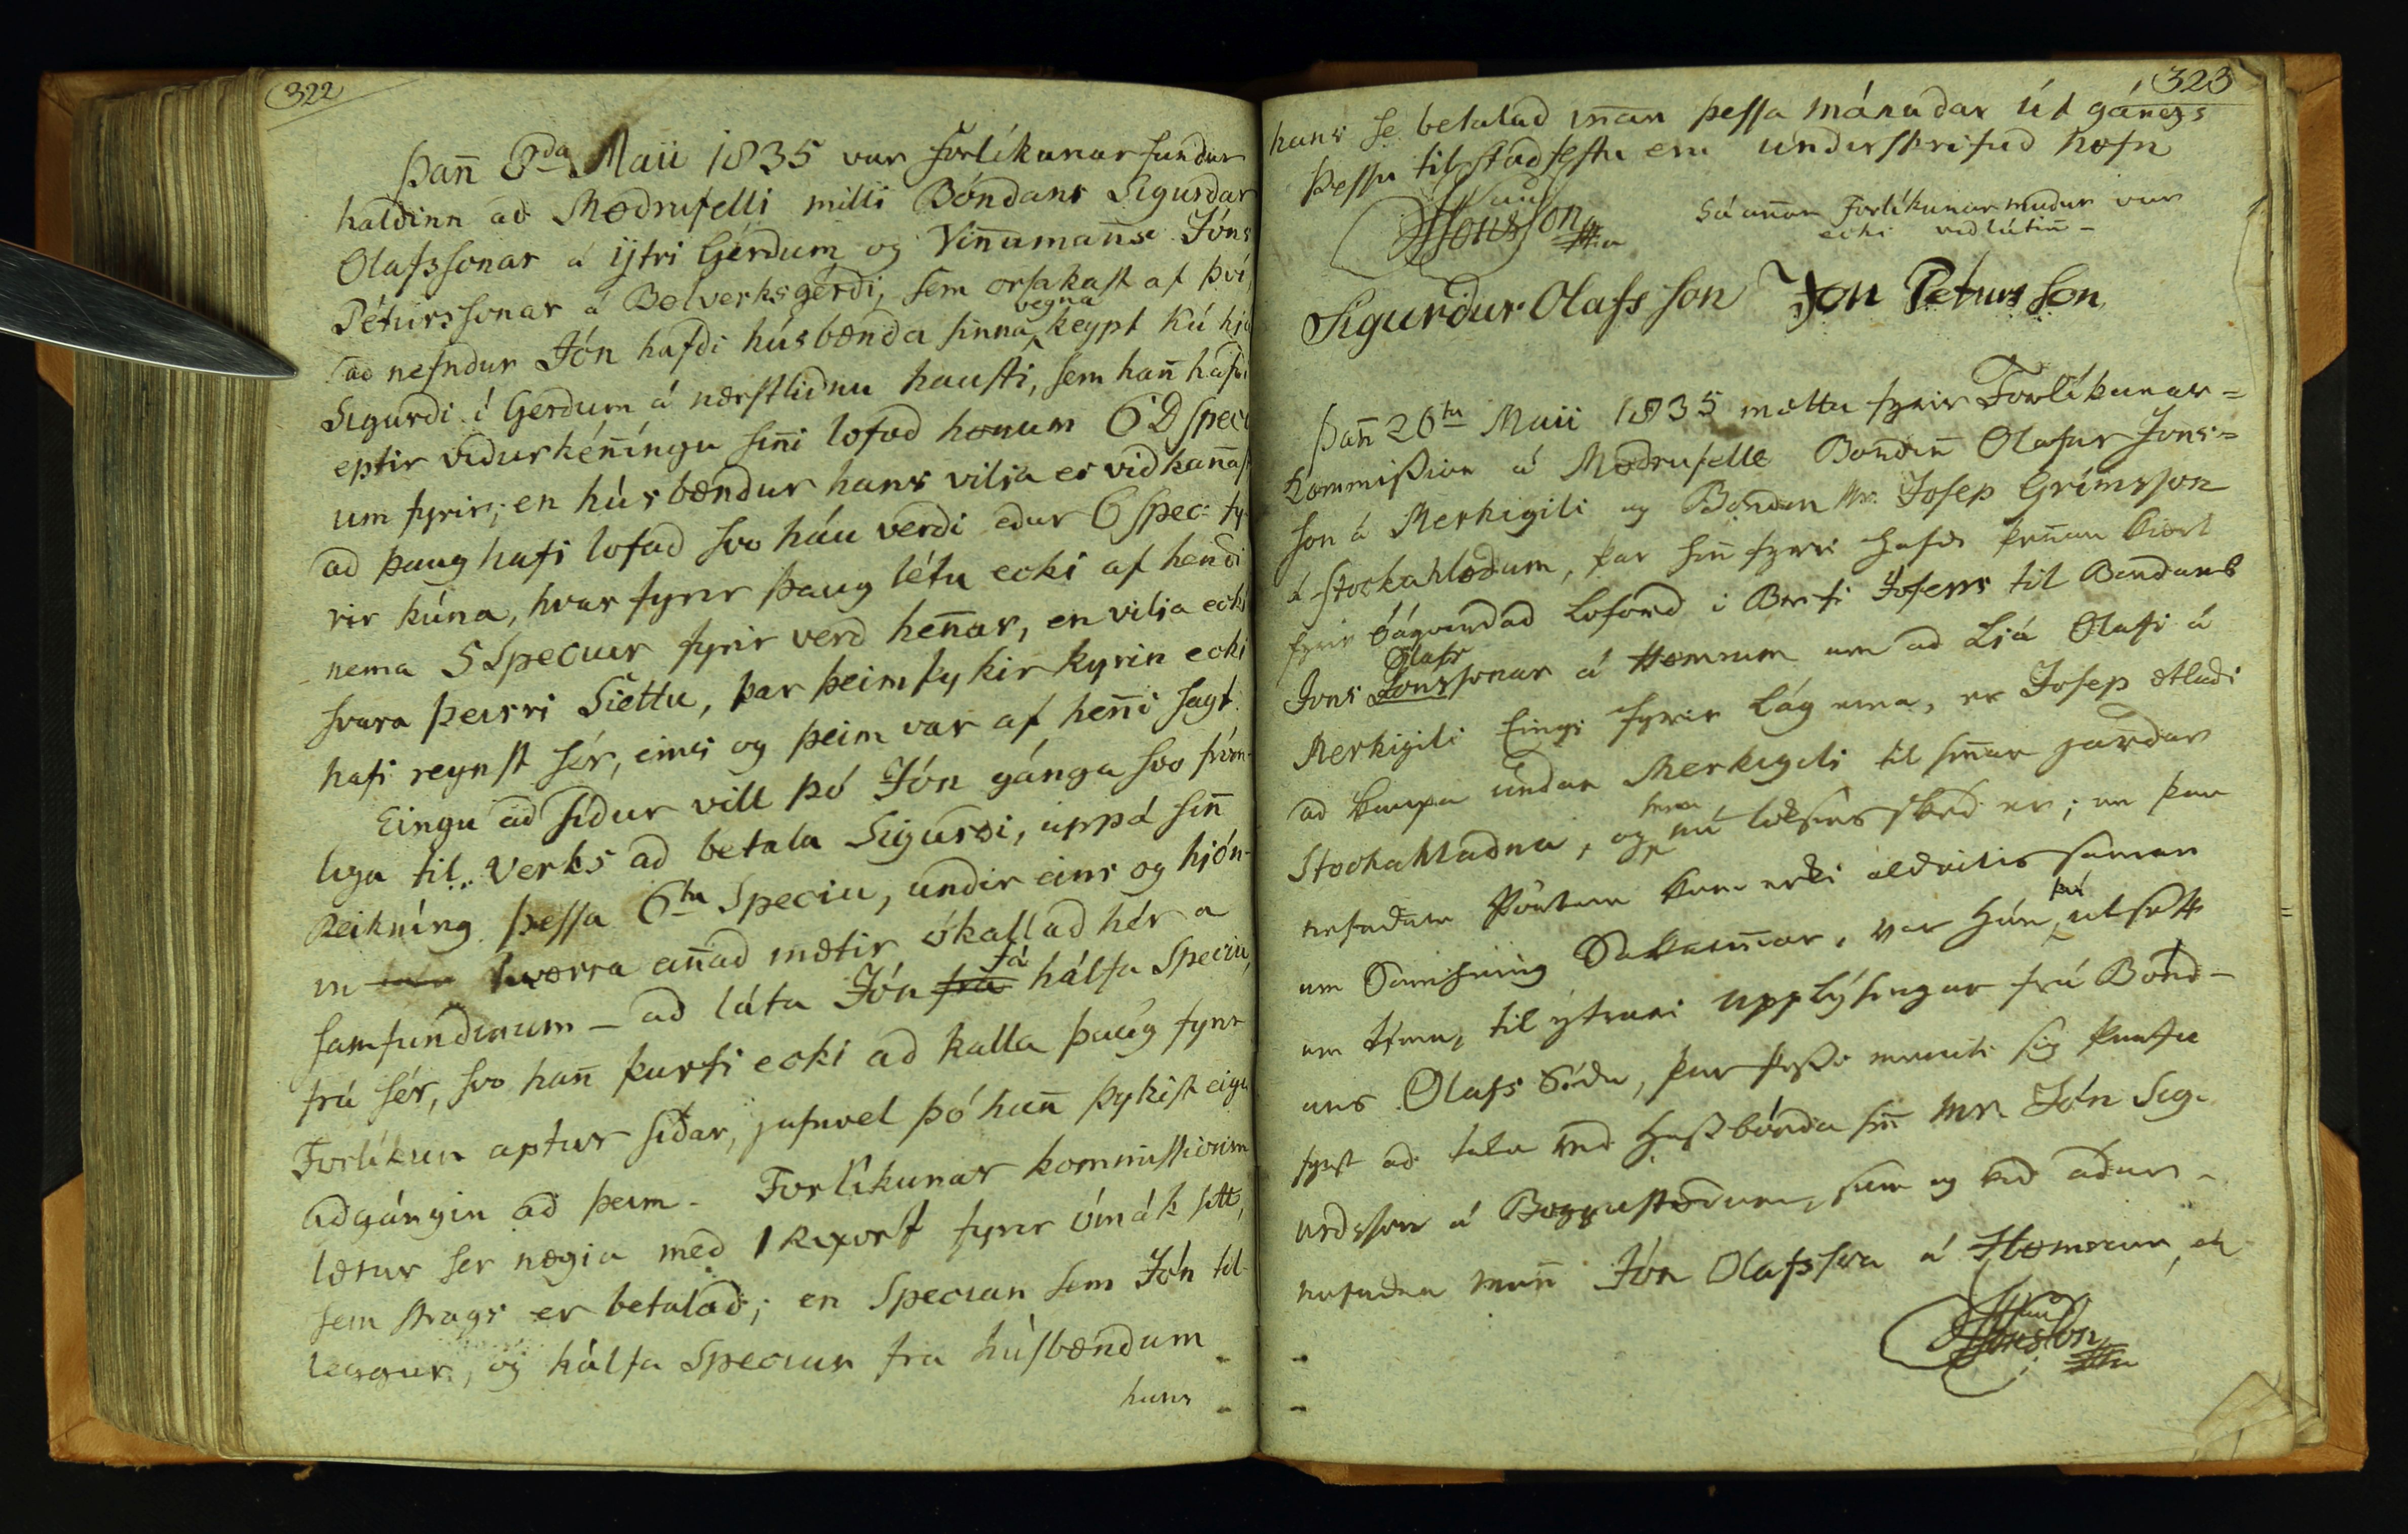 322
Þan̄ 8da Maii 1835 var Forlíkunarfundur
haldinn að Mödrufelli milli Bóndans Sigurðar
Olafssonar á ÿtri Gérdum og Vin̄uman̄s Jóns
Péturssonar á Bolverksgérði, sem orsakast af því,
að nefndur Jón hafði húsbænda sinna vegna keypt kú hjá
Sigurði í Gerdum á næstliðnu hausti, sem han̄ hafði
eptir viðurkén̄íngu sin̄i lofað honum 6 D Spec
um fyrir; en húsbændur hans vilja ei viðkan̄ast
að þaug hafi lofað svo háu verði eður 6 Spec: fy-
rir kúna, hvar fyrir þaug létu ecki af hendi
nema 5 Speciur fyrir verð hen̄ar, en vilja ecki
svara þeirri Siettu, þar þeim þykir kyrin ecki
hafi reynst sér, eins og þeim var af hen̄i sagt.
Eingu að síður vill þó Jón gánga svo fróm-
liga til verks að betala Sigurði, uppá sin̄
Reikníng þessa 6tu Speciu, undir eins og hjón-
in hvörra an̄að mætir ókallað hér a
samfundinum – að láta Jón fra fá hálfa Speciu,
frá sér, svo han̄ þurfi ecki að kalla þaúg fyrir
Forlíkun aptur síðar, jafnvel þó han̄ þykist eiga
aðgángin að þeim. Forlíkunar kommissionin
lætur sér nægia með 1 Rixort fyrir ómák sitt,
sem strags er betalað; en Specian sem Jón til-
leggur, og hálfa Speciun fra húsbændum
hans
323
hans sé betalað in̄an þessa mánaðar útgángs
Þessu til staðfestu eru undirskrifuð nöfn
HJonsson
Sá an̄ar Forlíkunarmaður var
ecki viðlátin̄ –
Sigurður Olafsson Jon Petursson
Þan̄ 26tu Maii 1835 mættu fyrir Forlíkunar=
kommißion á Mödrufelle Bondin̄ Olafur Jons=
son á Merkigili og Bondin Mr. Josep Grímsson
á Stockahlöðum, þar sin̄ fyrri hafði
fyrir loforð í Brefi Joseps til Bondans
Jons Jonssonar Olafs á Hömrum um að Ljá Olafi á
Merkigili Eingi fyrir Lág una, er Josep ætlaði
að kaupa undan Merkigili til sin̄ar jarðar
Stockahlaðna, og nú skeð er; en þar
nefndum Pörtum kom ecki aldeilis saman
um Sakarin̄ar, var hún því utsett
um tíma, til ytrari upplýsingar frá Bónd-
ans Olafs Síðu, þar þeßi meinti sig þurfa
fyrst að tala við Husbónda sin̄ Mr. Jón Sig-
urdsson á Böggustöðum, sem og við aður-
nefndan man̄ Jón Olafsson á Hömrum
HJonsson